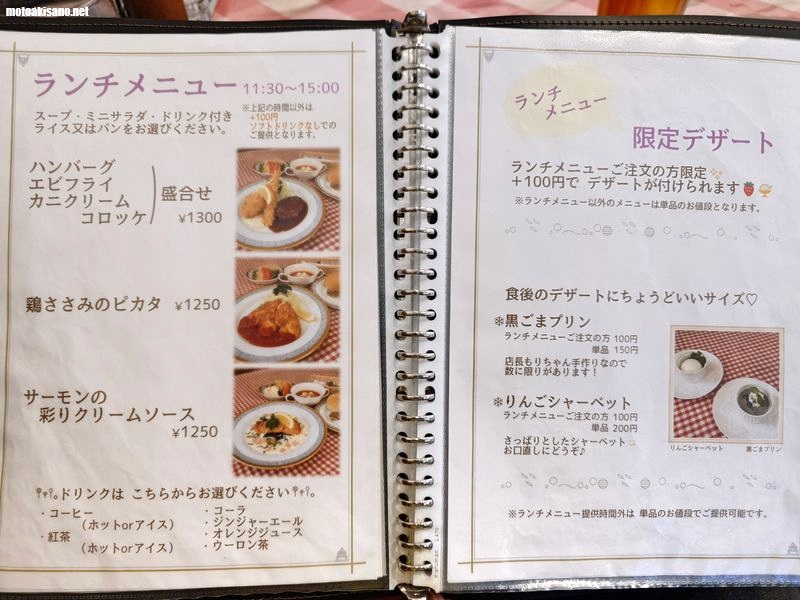 motoakisano.net
ランチメニュー 11:30〜15:00
スープ・ミニサラダ・ドリンク付き
ライス又はパンをお選びください。
※上記の時間以外は
+100円
ソフトドリンクなしでの
ご提供となります。
ハンバーグ
エビフライ
カニクリーム
コロッケ
盛合せ
¥1300
鶏ささみのピカタ ¥1250
サーモンの
彩りクリームソース
¥1250
ドリンクは こちらからお選びください
・コーヒー
(ホットorアイス)
・紅茶
(ホットorアイス)
・コーラ
・ジンジャーエール
・オレンジジュース
・ウーロン茶
ランチ
メニュー
限定デザート
ランチメニューご注文の方限定
+100円で デザートが付けられます
※ランチメニュー以外のメニューは単品のお値段となります。
食後のデザートにちょうどいいサイズ♡
❄黒ごまプリン
ランチメニューご注文の方 100円
単品 150円
店長もりちゃん手作りなので
数に限りがあります!
❄りんごシャーベット
ランチメニューご注文の方 100円
単品 200円
さっぱりとしたシャーベット
お口直しにどうぞ♪
りんごシャーベット 黒ごまプリン
※ランチメニュー提供時間外は 単品のお値段でご提供可能です。